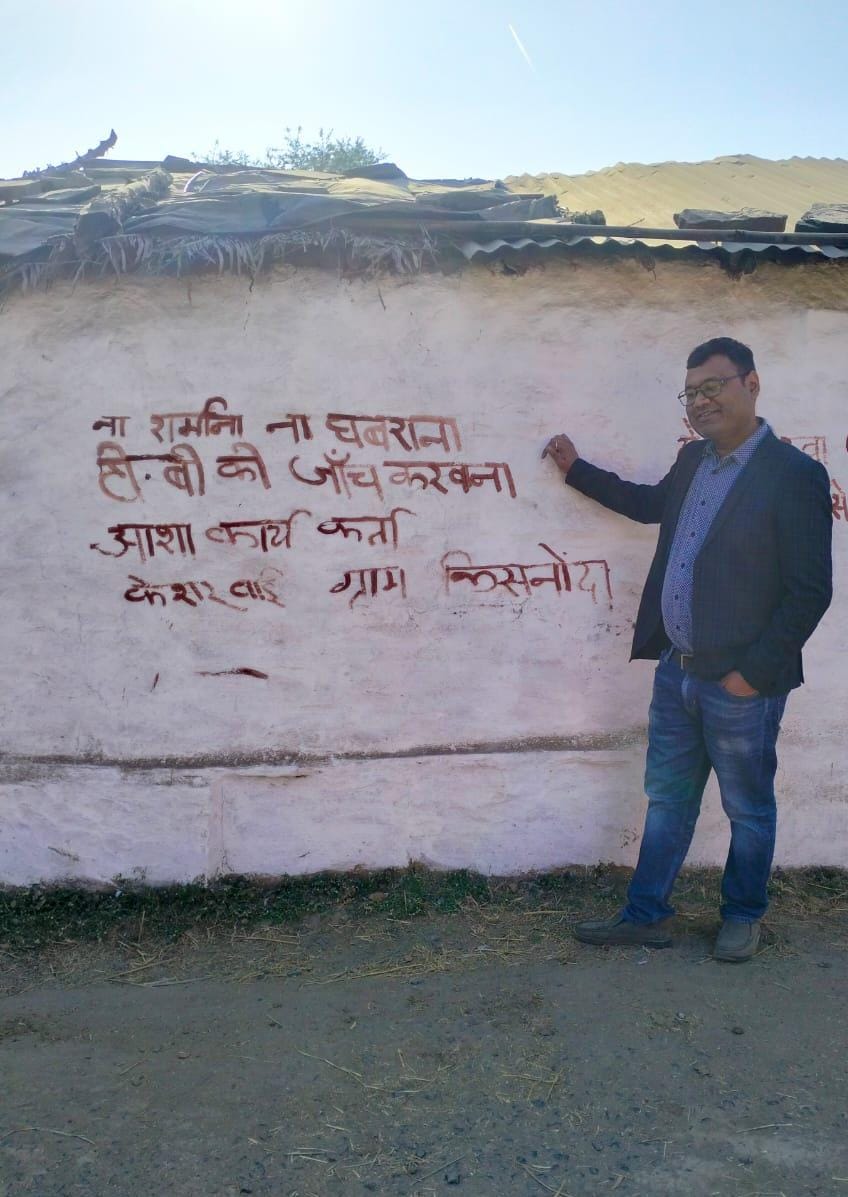 ना शर्माना ना घबराना
टी.बी की जाँच करवना
आशा कार्य कर्ता
केशर वाई ग्राम किसनोंदा
से